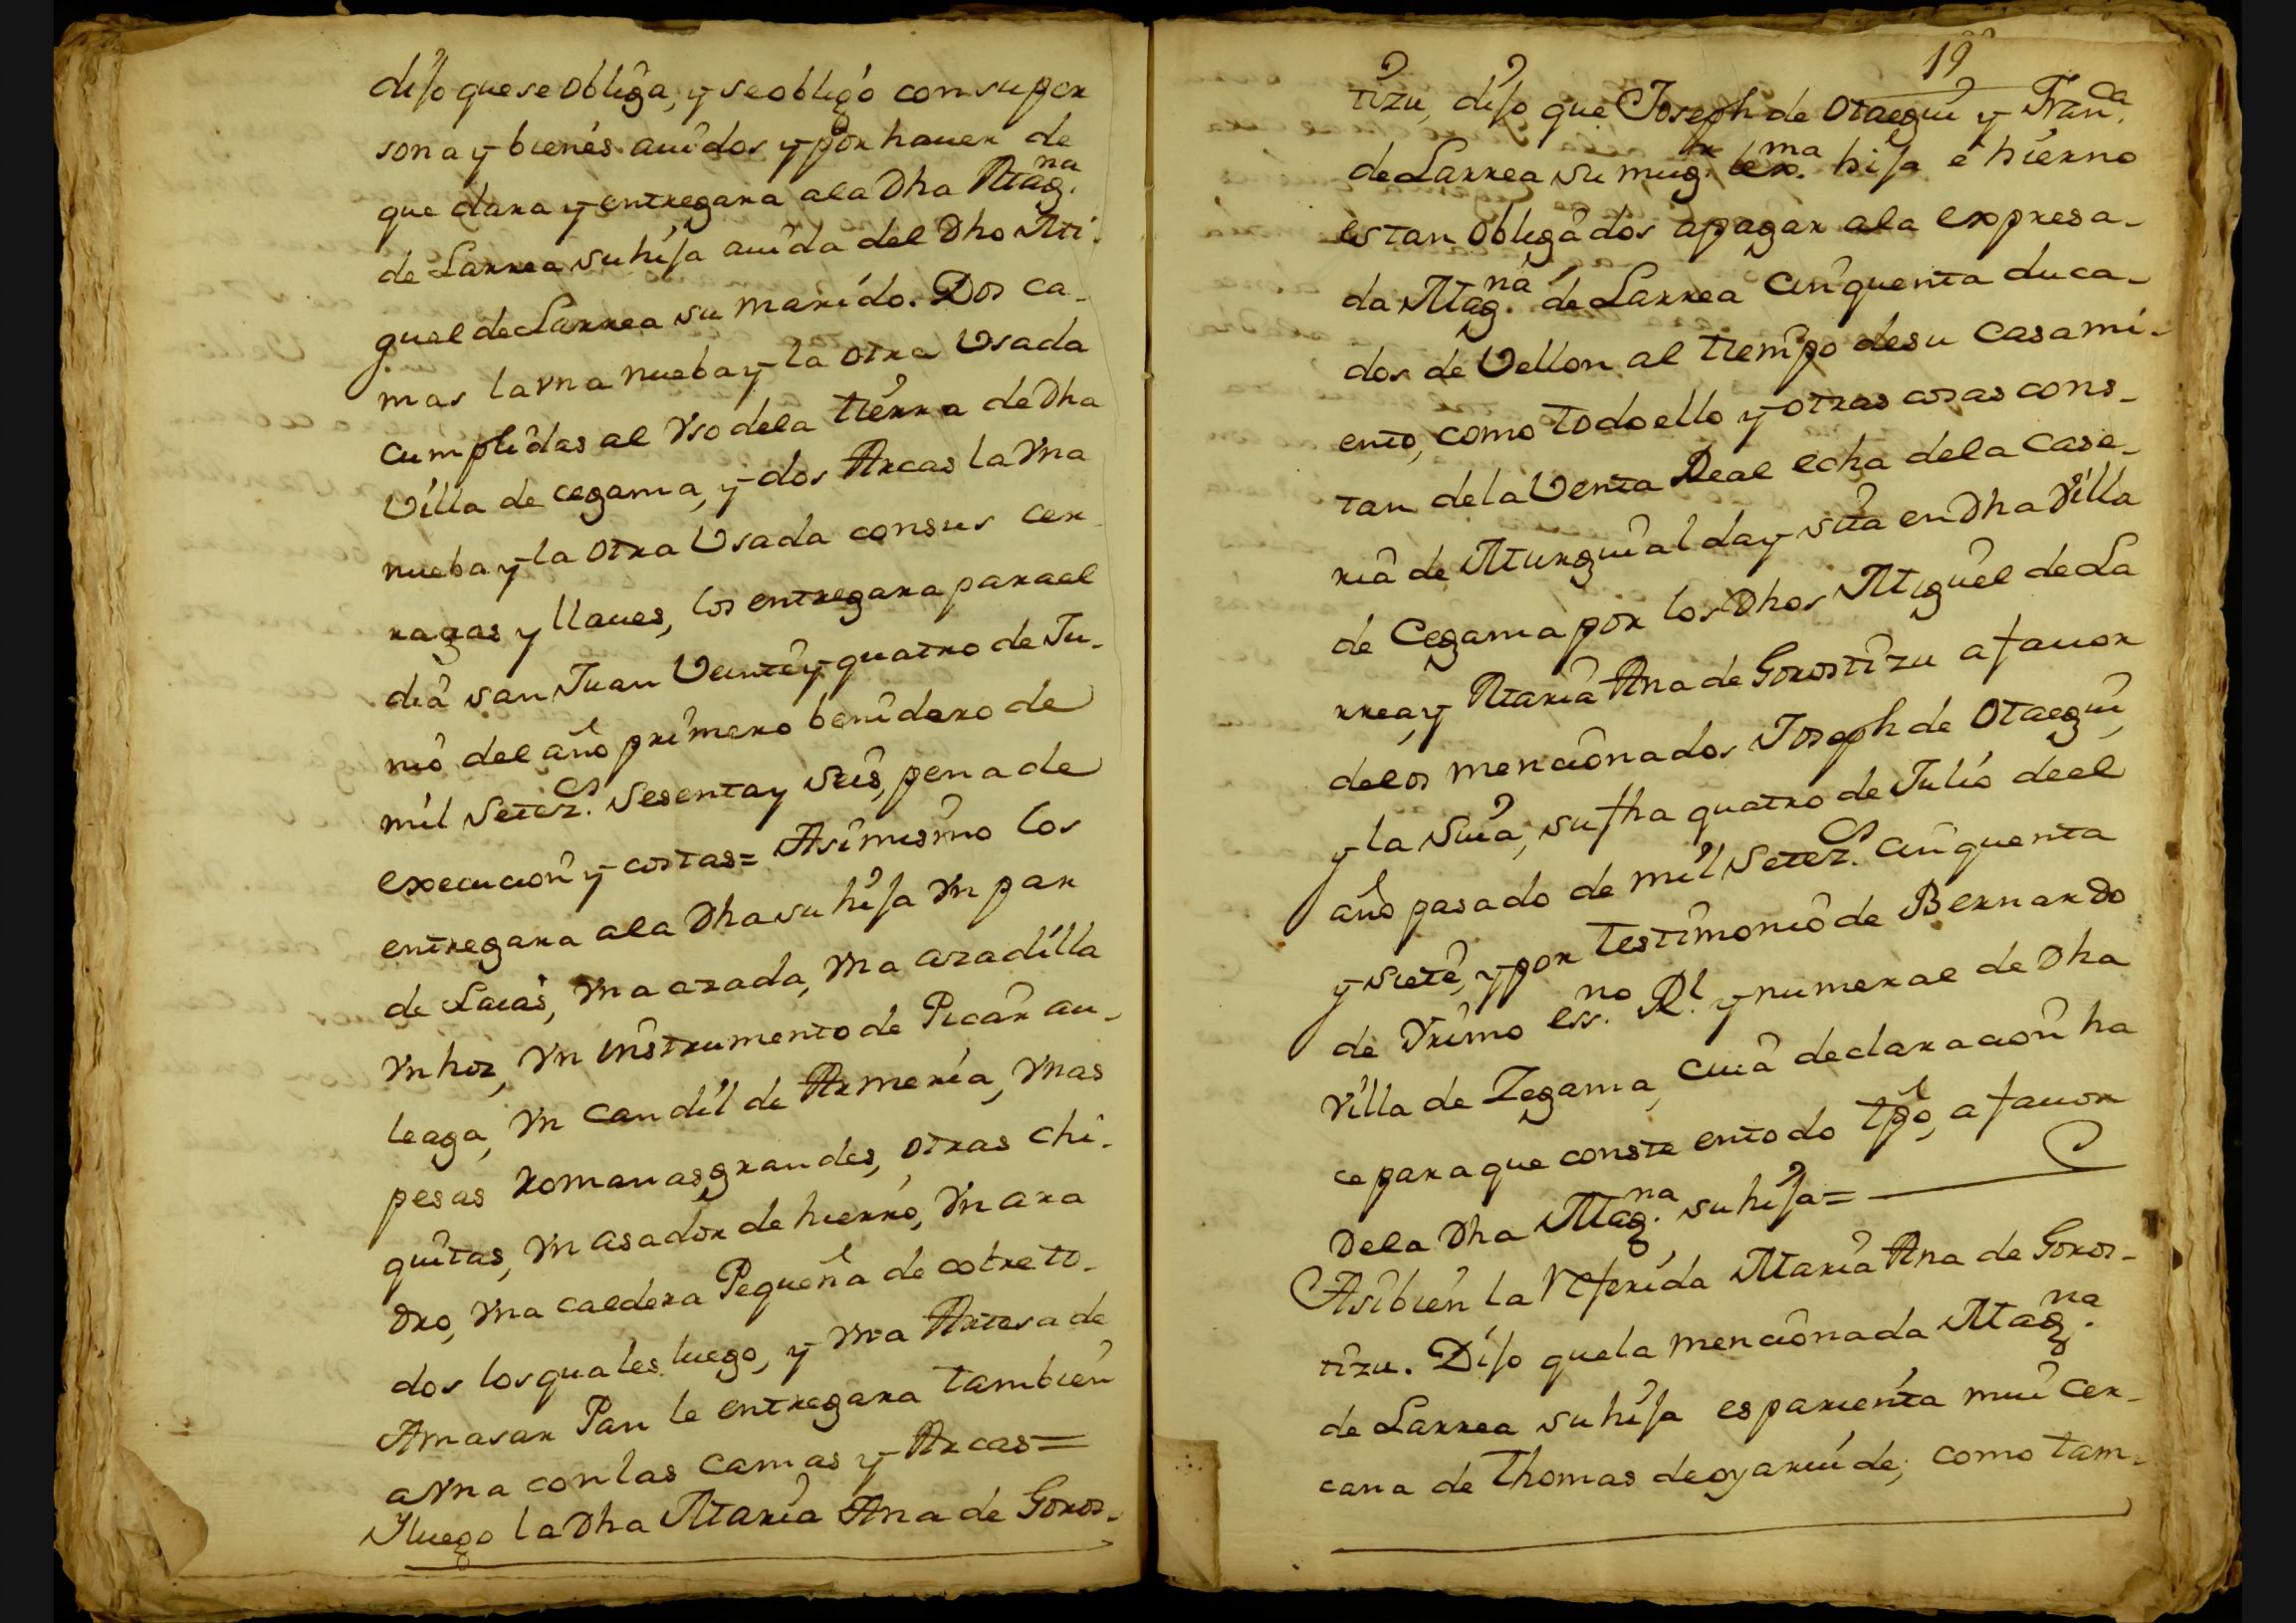 dijo que se obliga, y se obligó con su per
sona y bienes auidos y por hauer de
que dara y entregara a la Dha Mag.na
de Larrea su hija auida del Dho Mi-
guel de Larrea su marido. Dos ca-
mas la vna nueba y la otra Vsada
cumplidas al Vso de la tierra de Dha
Villa de cegama, y dos Arcas la Vna
nueba y la otra Vsada con sus cer
rajas y llaues, los entregara para el
dia san Juan Veinte y quatro de Ju-
nio del año primero benidero de
mil Setez.s Sesenta y Seis, pena de
execucion y costas= Asimismo los
entregara a la Dha su hija Vn par
de Laias, Vna azada, Vna azadilla
Vn hoz, Vn instrumento de Picar au-
leaga, Vn candil de Armeria, Vnas
pesas Romanas grandes, otras chi-
quitas, Vn asador de hierro, Vn ara
Dro, Vna caldera Pequeña de cobre to-
dos los quales luego, y Vna Artesa de
Amasar Pan le entregara tambien
a Vna con las camas y Arcas=
Y luego la Dha Maria Ana de Goros-
19
tizu, dijo que Joseph de Otaegui y Fran.ca
de Larrea su mug.r lex.ma hija e hierno
estan obligados a pagar a la expresa-
da Mag.na de Larrea cinquenta duca-
dos de Vellon al tiempo de su casami-
ento, como todo ello y otras cosas cons-
tan de la Venta Real echa de la case-
ria de Aturguialday sita en Dha Villa
de Cegama por los Dhos Miguel de La
rrea, y Maria Ana de Gorostizu a fauor
de los mencionados Joseph de Otaegui,
y la Suia, su fha quatro de Julio de el
año pasado de mil Setez.s cinquenta
y siete, y por testimonio de Bernardo
de Vrimo ess.no R.l y numeral de Dha
Villa de Zegama, cuia declaracion ha
ce para que conste en todo tpo, a fauor
De la Dha Mag.na su hija=
Asibien la Referida Maria Ana de Goros-
tizu. Dijo que la mencionada Mag.na
de Larrea su hija es parienta mui cer-
cana de Thomas de oyaruide, como tam-